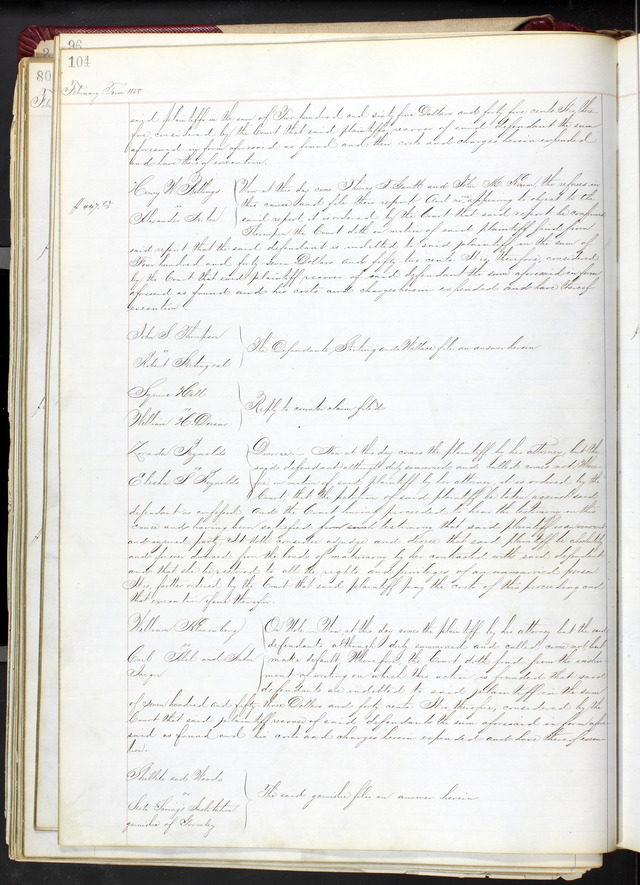 96
104
80
February Term 18
said plaintiff in the sum of Two hundred and sixty five Dollars and forty five cents It is, there
fore, considered by the Court that said plaintiff recover of said defendant the sum
aforesaid in form aforesaid as found and the costs and charges herein expended
and have thereof execution
Henry W.
vs
Alexander
Now at this day come Thomas T. Gantt and John M. Krum, the referees in
this cause and file their report And no appearing to object to the
said report, it is ordered by the Court that said report be confirmed
the Court doth on motion of said plaintiff find from
said report that the said defendant is indebted to said plaintiff in the sum of
Four hundred and forty seven Dollars and fifty two cents It is, therefore, considered
by the Court that said plaintiff recover of said defendant the sum aforesaid in form
aforesaid as found and his costs and charges herein expended and have thereof
execution
John S. Thompson
vs
Robert et al
The Defendants, Sterling and Wallace file an answer herein
Hall
vs
William H.
Reply to counter claim filed
Reynolds
vs
Charles S. Reynolds
Divorce. Now at this day comes the plaintiff by her attorney, but the
said defendant although duly summoned and called comes not
on motion of said plaintiff by her attorney it is ordered by the
Court that the petition of said plaintiff be taken against said
defendant as confessed. And the Court having proceeded to hear the testimony in this
cause and having been satisfied from said testimony that said plaintiff is an innocent
and injured party it doth order adjudge and decree that said plaintiff be absolutely
and forever divorced from the bonds of matrimony by her contracted with said defendant
and that she be restored to all the rights and privileges of an unmarried person
It is further ordered by the Court that said plaintiff pay the costs of this proceeding and
that execution issue therefor.
William
vs
Carl and John
On Note. Now at this day comes the plaintiff by his attorney but the said
defendants although duly summoned and called come not but
make default. Wherefore the Court doth find from the instru
ment of writing on which this action is founded that said
defendants are indebted to said plaintiff in the sum
of seven hundred and fifty three Dollars and forty cents It is, therefore, considered by the
Court that said plaintiff recover of said defendants the sum aforesaid in form afore
said as found and his costs and charges herein expended and have thereof execu
tion.
and Woods
vs
State Savings Institution
garnishee of
The said garnishee files an answer herein